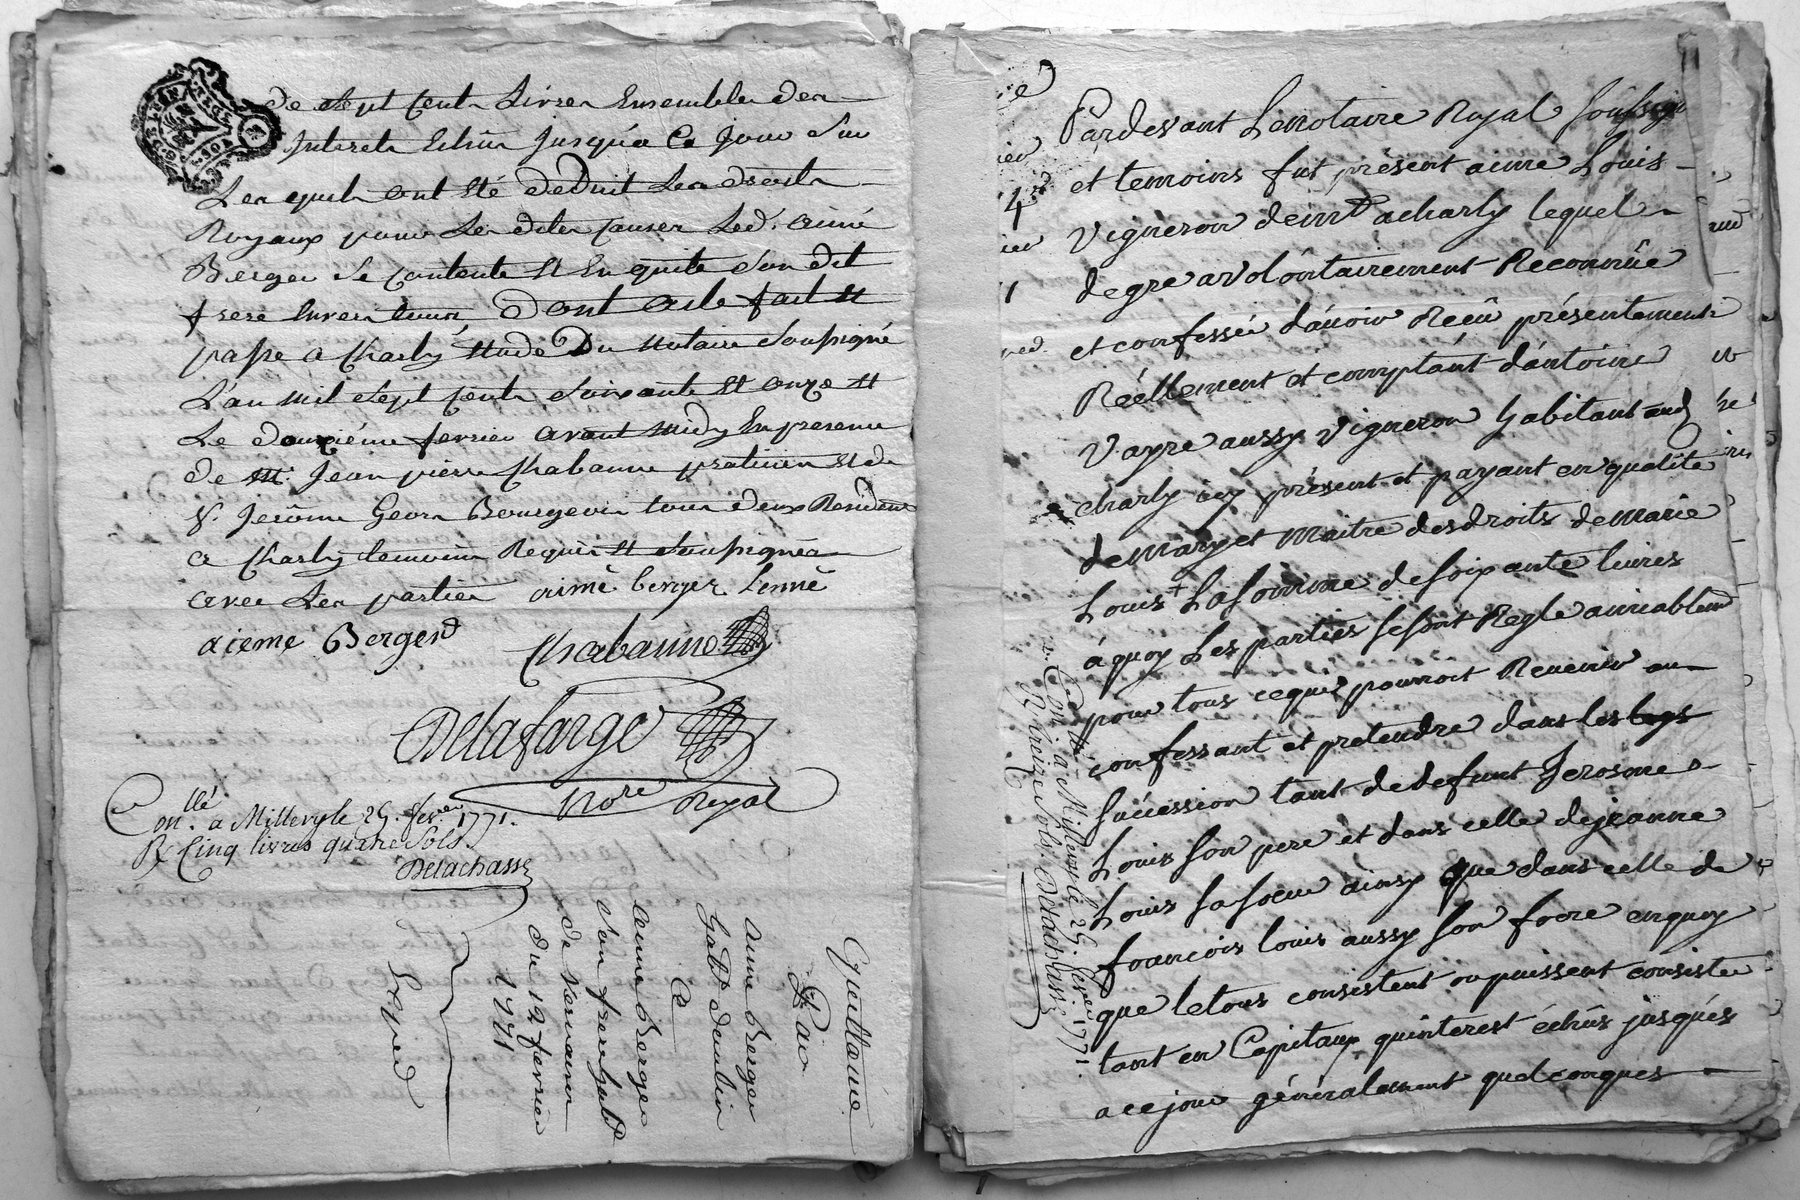 de sept cents Livres Ensemble des
Interets Echus jusqu'a Ce jour Sur
Lesquels ont été deduit Les droits
Royaux pour Les dites causes Led. aimé
Berger Se contente Et En quite Son dit
frere Envers tous Dont acte fait Et
passé a Charly Etude Du Notaire Soussigné
L'an mil Sept cents Soixante Et onze Et
Le douzième fevrier avant midy En presence
de Mr. Jean pierre Chabanne praticien Et de
Sr. Jerôme Geors Bourgeois tous deux Residents
a Charly temoins Requis Et Soussignés
avec Les parties aimé berger Lenné
aieme Berger
Chabanne
Delafarge
Nore Royal
Conllé. a Millery le 25. fevr. 1771.
R Cinq livres quatre Sols.
Delachasse
Quittance
Par
aimé Berger
habt de
A
aimé Berger
Son frere habt
de Vernaison
du 12 fevrier
1771
Exped
Pardevant Le notaire Royal soussigné
et temoins fut présent aimé Louis
Vigneron demt a charly lequel
de gre a volontairement Reconnûe
et confessée d'avoir Recû présentement
Réellement et comptant d'antoine
Vayre aussy Vigneron habitant aud
charly icy présent et payant en qualité
de mary et maitre des droits de marie
Louis + La somme de soixante livres
à quoy Les parties se sont Regle amiablemt
pour tous ce qui pourroit Revenir au
confessant et pretendre dans les
Sucession tant de defunt Jerosme
Louis son pere et dans celle de jeanne
Louis sa soeur ainsy que dans celle de
francois louis aussy son frere en quoy
que le tous consistent ou puissent consiste
tant en Capitaux qu'interest échûs jusqués
a ce jour généralement quelconques
Conllé. a Millery le 25. fevrier 1771.
R treize Sols. Delachasse